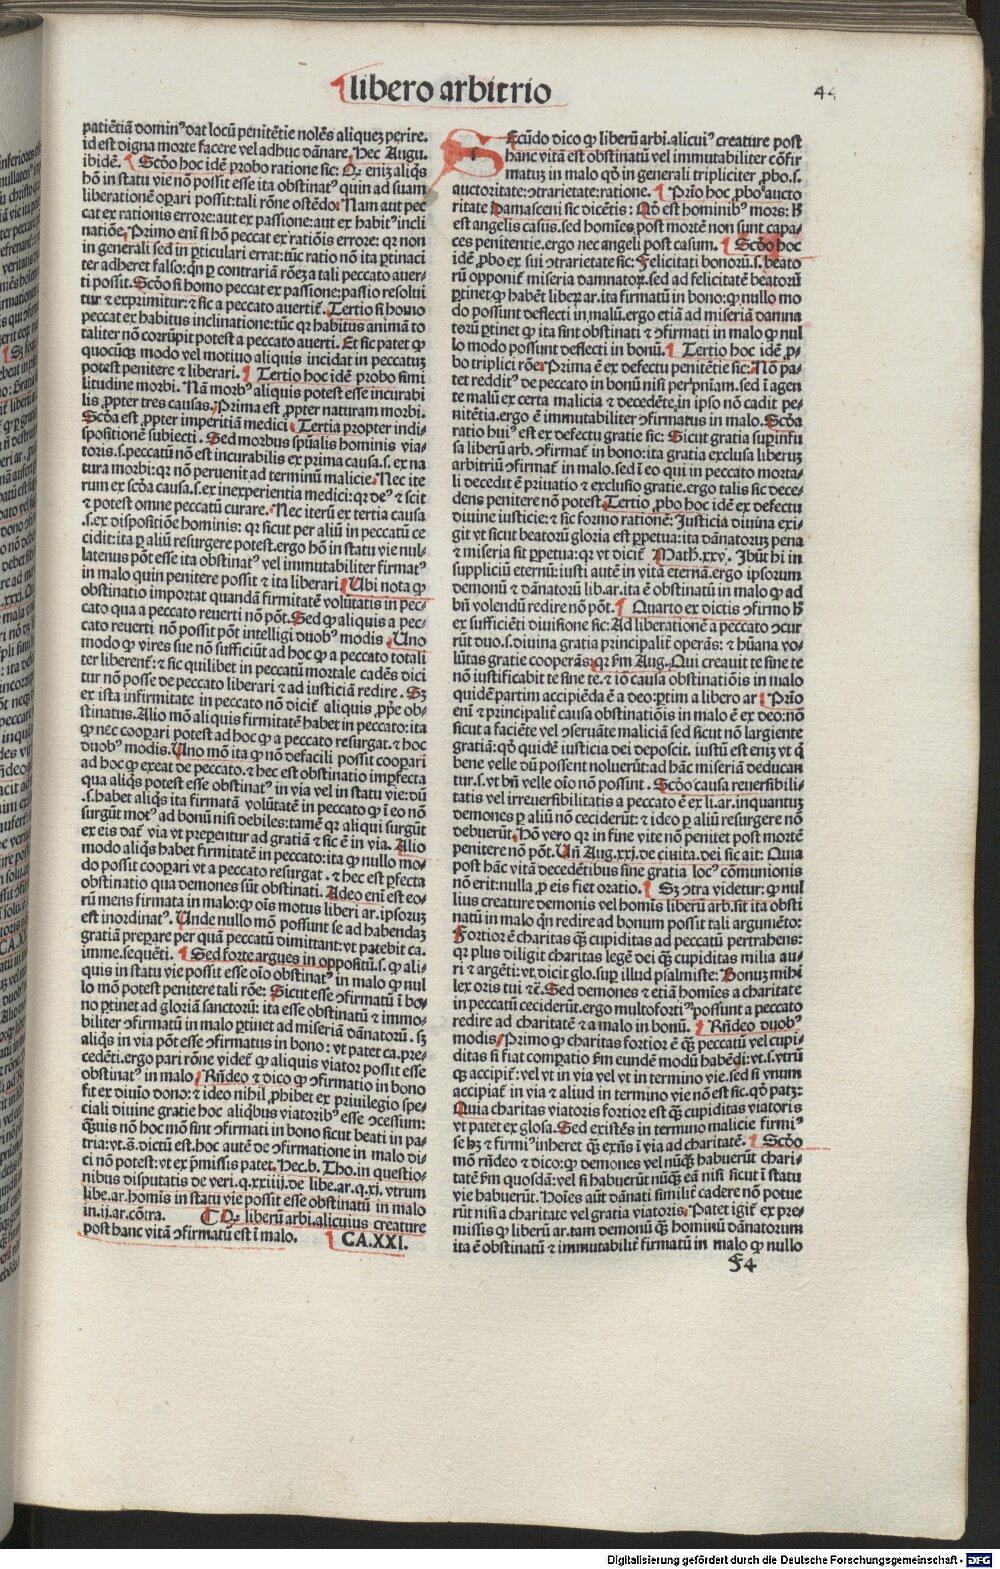 libero arbitrio
44
patiẽtiã domin⁹ dat locũ penitẽtie nolẽs aliquez perire.
id est digna morte facere vel adhuc dãnare. Hec Augu.
ibidẽ. ¶ Scḋo hoc idẽ ꝓbo ratione sic: Qꝛ eniz aliq̃s
hõ in statu vie nõ possit esse ita obstinat⁹ quin ad suam
liberationẽ oꝑari possit: tali rõne ostẽdo. Nam aut pec
cat ex rationis errore: aut ex passione: aut ex habit⁹ incli
natiõe. Primo eni si hõ peccat ex ratiõis errore: qꝛ non
in generali sed in ꝑticulari errat: tũc ratio nõ ita ꝑtinaci
ter adheret falso: qn̄ ꝑ contrariã rõez a tali peccato auer-
ti possit. Scḋo si homo peccat ex passione: passio resolui
tur ⁊ exprimitur: ⁊ sic a peccato auertit̃. Tertio si homo
peccat ex habitus inclinatione: tũc qꝛ habitus animã to
taliter nõ corrũpit potest a peccato auerti. Et sic patet ꝙ
quocũqꝫ modo vel motiuo aliquis incidat in peccatuz
potest penitere ⁊ liberari. ¶ Tertio hoc idẽ probo simi
litudine morbi. Nã morb⁹ aliquis potest esse incurabi
lis ꝓpter tres causas. Prima est ꝓpter naturam morbi.
Scḋa est ꝓpter imperitiã medici. Tertia propter indi-
spositionẽ subiecti. Sed morbus spũalis hominis via-
toris. s. peccatũ nõ est incurabilis ex prima causa. s. ex na
tura morbi: qꝛ nõ peruenit ad terminũ malicie. Nec ite
rum ex scḋa causa. s. ex inexperientia medici: qꝛ de⁹ ⁊ scit
⁊ potest omne peccatũ curare. Nec iterũ ex tertia causa
.s. ex dispositiõe hominis: qꝛ sicut per aliũ in peccatũ ce
cidit: ita ꝑ aliũ resurgere potest. ergo hõ in statu vie nul-
latenus põt esse ita obstinat⁹ vel immutabiliter firmat⁹
in malo quin penitere possit ⁊ ita liberari. ¶ Ubi nota ꝙ
obstinatio importat quandã firmitatẽ volũtatis in pec-
cato qua a peccato reuerti nõ põt. Sed ꝙ aliquis a pec-
cato reuerti nõ possit põt intelligi duob⁹ modis. Uno
modo ꝙ vires sue nõ sufficiũt ad hoc ꝙ a peccato totali
ter liberent̃: ⁊ sic quilibet in peccatũ mortale cadẽs dici
tur nõ posse de peccato liberari ⁊ ad iusticiã redire. Sꝫ
ex ista infirmitate in peccato nõ dicit̃ aliquis ꝓp̃e ob-
stinatus. Alio mõ aliquis firmitatẽ habet in peccato: ita
ꝙ nec cooꝑari potest ad hoc ꝙ a peccato resurgat. ⁊ hoc
duob⁹ modis. Uno mõ ita ꝙ nõ defacili possit cooꝑari
ad hoc ꝙ exeat de peccato. ⁊ hec est obstinatio imꝑfecta
qua aliq̃s potest esse obstinat⁹ in via vel in statu vie: dũ
.s. habet aliq̃s ita firmatã volũtatẽ in peccato ꝙ ĩ eo nõ
surgũt mot⁹ ad bonũ nisi debiles: tamẽ qꝛ aliqui surgũt
ex eis dat̃ via vt preꝑentur ad gratiã ⁊ sic ẽ in via. Alio
modo aliq̃s habet firmitatẽ in peccato: ita ꝙ nullo mo-
do possit cooꝑari vt a peccato resurgat. ⁊ hec est ꝑfecta
obstinatio qua demones sũt obstinati. Adeo eni est eo-
rũ mens firmata in malo: ꝙ oĩs motus liberi ar. ipsoruz
est inordinat⁹. Unde nullo mõ possunt se ad habendaz
gratiã preꝑare per quã peccatũ dimittant: vt patebit ca.
imme. sequẽti. ¶ Sed forte argues in oppositũ. s. ꝙ ali-
quis in statu vie possit esse oĩo obstinat⁹ in malo ꝙ nul
lo mõ potest penitere tali rõe: Sicut esse ↄfirmatũ ĩ bo-
no ꝑtinet ad gloriã sanctorũ: ita esse obstinatũ ⁊ immo-
biliter ↄfirmatũ in malo ꝑtinet ad miseriã dãnatorũ. sꝫ
aliq̃s in via põt esse ↄfirmatus in bono: vt patet ca. pre-
cedẽti. ergo pari rõne videt̃ ꝙ aliquis viator possit esse
obstinat⁹ in malo. Rñdeo ⁊ dico ꝙ ↄfirmatio in bono
fit ex diuio dono: ⁊ ideo nihil ꝓhibet ex priuilegio spe-
ciali diuine gratie hoc aliqbus viatorib⁹ esse ↄcessum:
q̃uis nõ hoc mõ sint ↄfirmati in bono sicut beati in pa-
tria: vt. s̃. dictũ est. hoc autẽ de ↄfirmatione in malo di-
ci nõ potest: vt ex p̃missis patet. Hec. b. Tho. in questio-
nibus disputatis de veri. q. xxiiij. de libe. ar. q. xj. vtrum
libe. ar. homis in statu vie possit esse obstinatũ in malo
in. ij. ar. cõtra. ¶ Qꝛ liberũ arbi. alicuius creature
post hanc vitã ↄfirmatũ est ĩ malo. ¶ CA. XXI.
SEcũdo dico ꝙ liberũ arbi. alicui⁹ creature post
hanc vitã est obstinatũ vel immutabiliter cõfir
matuz in malo qḋ in generali tripliciter ꝓbo. s.
auctoritate: ↄtrarietate: ratione. ¶ Prio hoc ꝓbo aucto
ritate Damasceni sic dicẽtis: Qḋ est hominib⁹ mors: h̃
est angelis casus. sed homies post mortẽ non sunt capa-
ces penitentie. ergo nec angeli post casum. ¶ Scḋo hoc
idẽ ꝓbo ex sui ↄtrarietate sic: Felicitati bonorũ. s. beato
rũ opponit̃ miseria damnatoꝝ. sed ad felicitatẽ beatorũ
ꝑtinet ꝙ habẽt liberꝫ ar. ita firmatũ in bono: ꝙ nullo mo
do possunt deflecti in malũ. ergo etiã ad miseriã damna
torũ ꝑtinet ꝙ ita sint obstinati ⁊ ↄfirmati in malo ꝙ nul
lo modo possunt deflecti in bonũ. ¶ Tertio hoc idẽ ꝓ-
bo triplici rõe. Prima ẽ ex defectu penitẽtie sic: Nõ pa-
tet reddit⁹ de peccato in bonũ nisi per pñiam. sed ĩ agen
te malũ ex certa malicia ⁊ decedẽte in ipso nõ cadit pe-
nitẽtia. ergo ẽ immutabiliter ↄfirmatus in malo. Scḋa
ratio hui⁹ est ex defectu gratie sic: Sicut gratia suꝑinfu
sa liberũ arb. ↄfirmat̃ in bono: ita gratia exclusa liberuz
arbitriũ ↄfirmat̃ in malo. sed ĩ eo qui in peccato morta-
li decedit ẽ priuatio ⁊ exclusio gratie. ergo talis sic dece-
dens penitere nõ potest. Tertio ꝓbo hoc idẽ ex defectu
diuine iusticie: ⁊ sic formo rationẽ: Justicia diuina exi-
git vt sicut beatorũ gloria est ꝑpetua: ita dãnatoruz pena
⁊ miseria sit ꝑpetua: qꝛ vt dicit̃ Math. xxv. Ibũt hi in
suppliciũ eternũ: iusti autẽ in vitã eternã. ergo ipsorum
demonũ ⁊ dãnatorũ lib. ar. ita ẽ obstinatũ in malo ꝙ ad
bñ volendũ redire nõ põt. ¶ Quarto ex dictis ↄfirmo h̃
ex sufficiẽti diuisione sic: Ad liberationẽ a peccato ↄcur
rũt duo. s. diuina gratia principalit̃ operãs: ⁊ hũana vo-
lũtas gratie cooperãs: qꝛ ẞm Aug. Qui creauit te sine te
nõ iustificabit te sine te. ⁊ io causa obstinatiõis in malo
quidẽ partim accipiẽda ẽ a deo: ꝑtim a libero ar. ¶ Prio
eni ⁊ principalit̃ causa obstinatiõis in malo ẽ ex deo: nõ
sicut a faciẽte vel ↄseruãte maliciã sed sicut nõ largiente
gratiã: qḋ quidẽ iusticia dei deposcit. iustũ est eniz vt q̃
bene velle dũ possent noluerũt: ad hãc miseriã deducan
tur. s. vt bñ velle oĩo nõ possint. Scḋo causa reuersibili-
tatis vel irreuersibilitatis a peccato ẽ ex li. ar. inquantuz
demones ꝑ aliũ nõ ceciderũt: ⁊ ideo ꝑ aliũ resurgere nõ
debuerũt. Hõ vero qꝛ in fine vite nõ penitet post mortẽ
penitere nõ põt. Uñ Aug. xxj. de ciuita. dei sic ait: Quia
post hãc vitã decedẽtibus sine gratia loc⁹ cõmunionis
nõ erit: nulla ꝓ eis fiet oratio. ¶ Sꝫ ↄtra videtur: ꝙ nul
lius creature demonis vel homis liberũ arb. sit ita obsti
natũ in malo qñ redire ad bonum possit tali argumẽto:
Fortior ẽ charitas q̃ꝫ cupiditas ad peccatũ pertrahens:
qꝛ plus diligit charitas legẽ dei q̃ꝫ cupiditas milia au-
ri ⁊ argẽti: vt. dicit glo. suꝑ illud psalmiste: Bonuz mihi
lex oris tui ⁊c̃. Sed demones ⁊ etiã homies a charitate
in peccatũ ceciderũt. ergo multofortius possunt a peccato
redire ad charitatẽ ⁊ a malo in bonũ. ¶ Rñdeo duob⁹
modis. Primo ꝙ charitas fortior ẽ q̃ꝫ peccatũ vel cupi-
ditas si fiat comꝑatio ẞm eundẽ modũ habẽdi: vt. s. vtrũ
q̃ꝫ accipit̃: vel vt in via vel vt in termino vie. sed si vnum
accipiat̃ in via ⁊ aliud in termino vie nõ est sic. qḋ patꝫ:
Quia charitas viatoris fortior est q̃ꝫ cupiditas viatoris
vt patet ex glosa. Sed existẽs in termino malicie firmi⁹
se hꝫ ⁊ firmi⁹ inheret q̃ꝫ exñs ĩ via ad charitatẽ. ¶ Scḋo
mõ rñdeo ⁊ dico: ꝙ demones vel nũq̃ꝫ habuerũt chari-
tatẽ ẞm quosdã: vel si habuerũt nũq̃ꝫ eã nisi sicut ĩ statu
vie habuerũt. Hoĩes aũt dãnati similit̃ cadere nõ potue
rũt nisi a charitate vel gratia viatoris. Patet igit̃ ex pre-
missis ꝙ liberũ ar. tam demonũ q̃ꝫ hominũ dãnatorum
ita ẽ obstinatũ ⁊ immutabilit̃ firmatũ in malo ꝙ nullo
F4
Digitalisierung gefördert durch die Deutsche Forschungsgemeinschaft - DFG